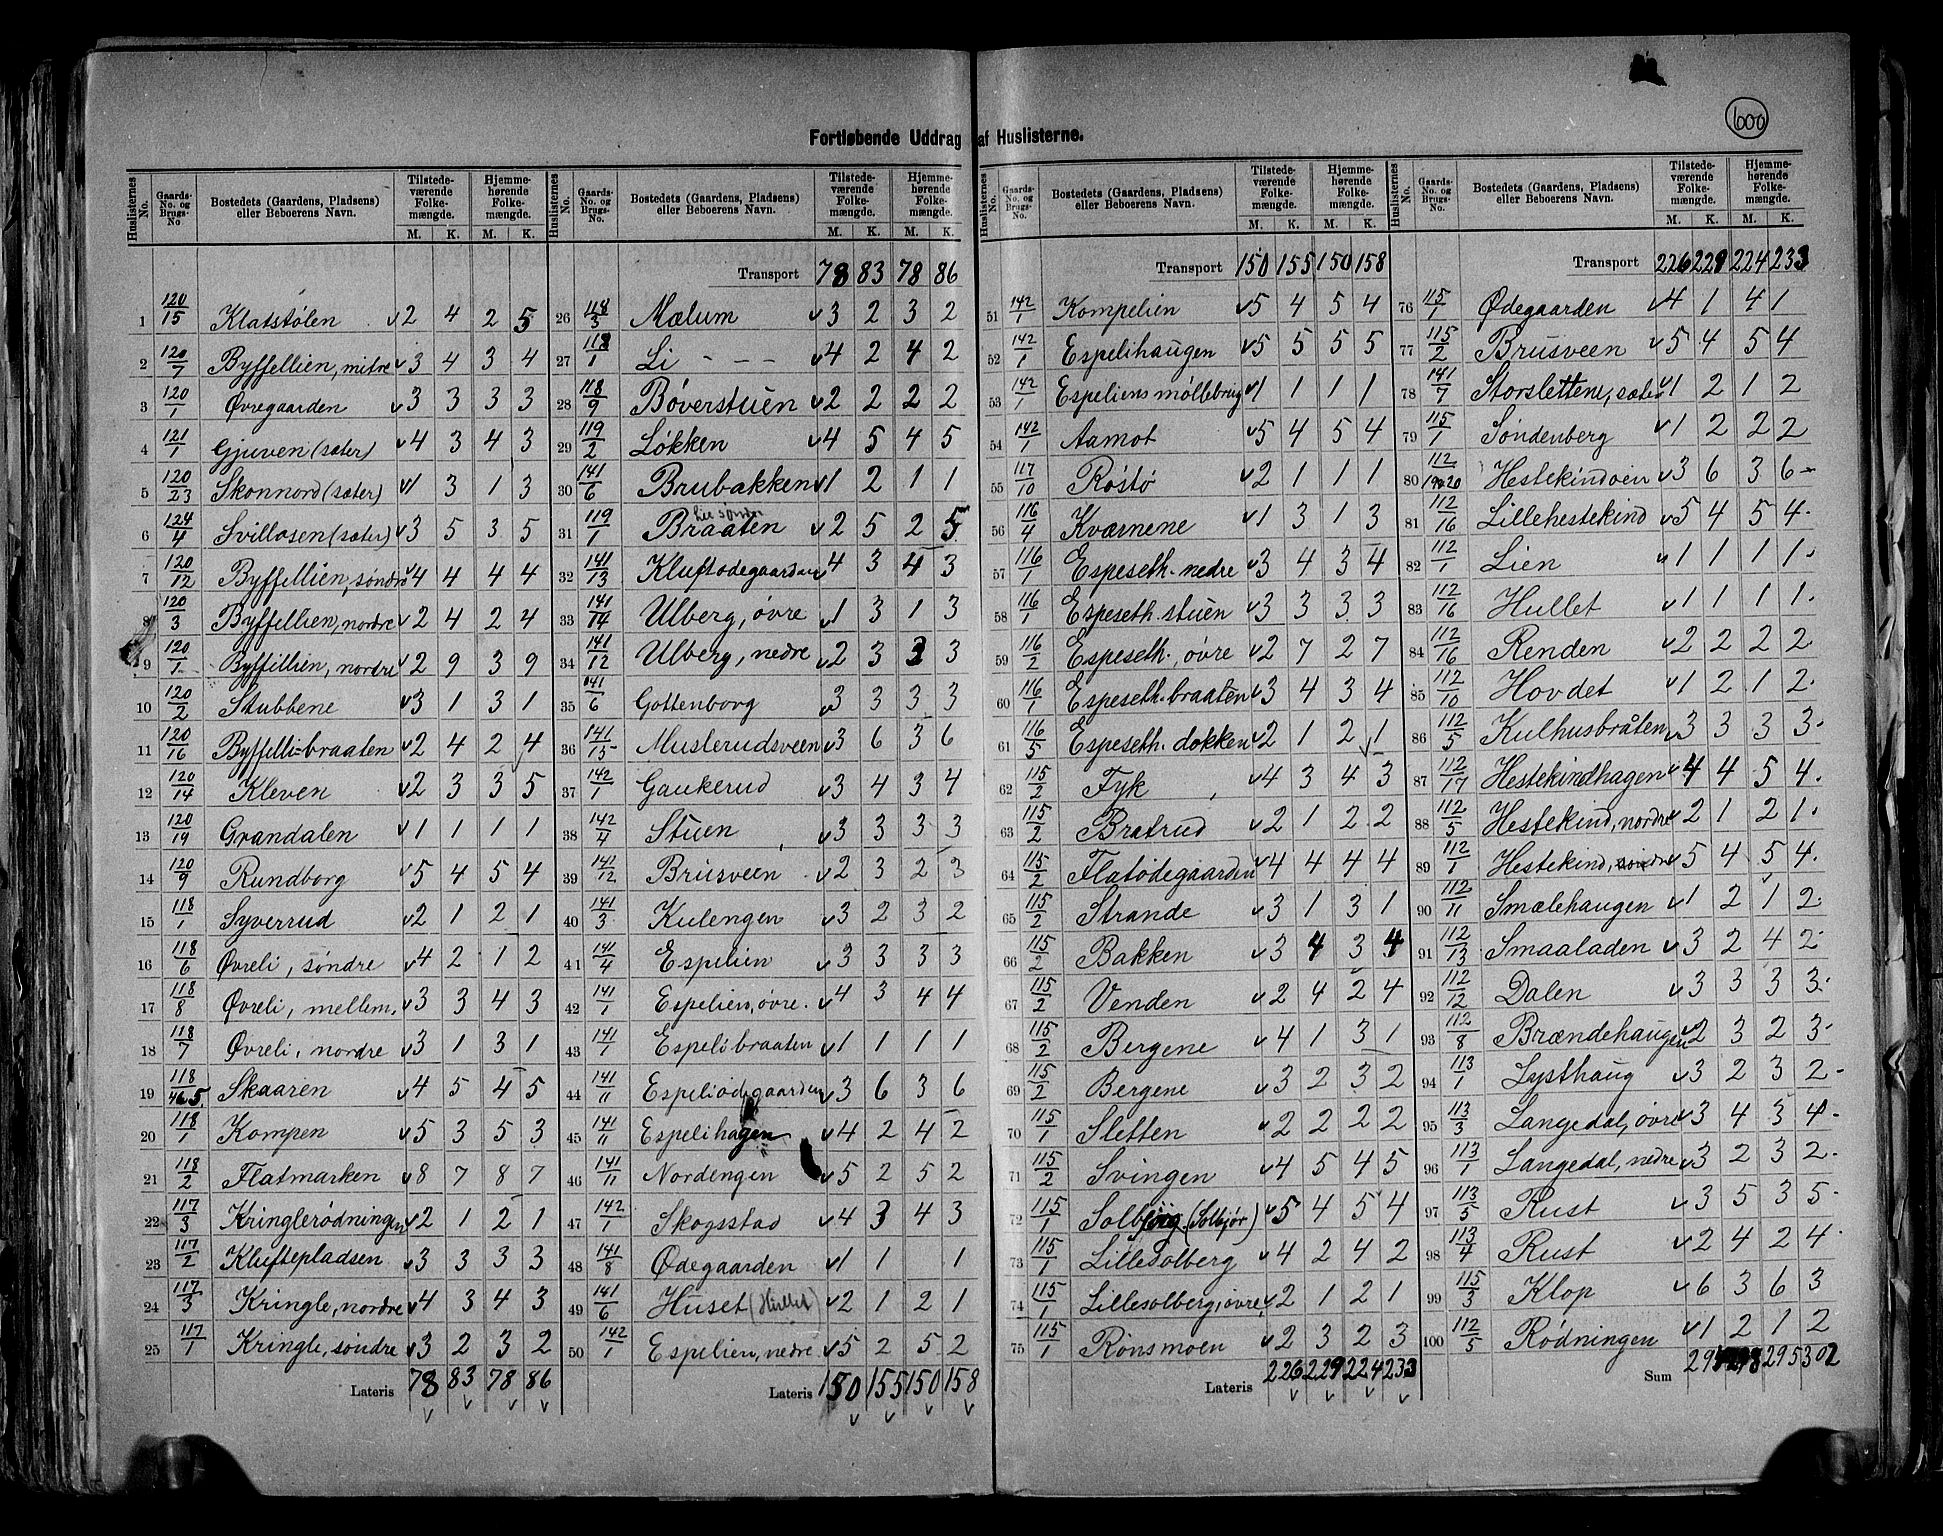 600
Fortløbende Uddrag af Huslisterne.
Huslisternes No. | Gaards-No. og Brugs-No | Bostedets (Gaardens, Pladsens) eller Beboerens Navn. | Tilstedeværende Folkemængde. M. K. | Hjemmehørende Folkemængde. M. K.
1 120/15 Klatstølen 2 4 2 5
2 120/7 Byffellien, mitre 3 4 3 4
3 120/1 Øvregaarden 3 3 3 3
4 121/1 Gjuven (sæter) 4 3 4 3
5 120/23 Skonnord (sæter) 1 3 1 3
6 124/4 Svillosen (sæter) 3 5 3 5
7 120/12 Byffellien, søndre 4 4 4 4
8 120/3 Byffellien, nordre 2 4 2 4
9 120/1 Byffillien, nordre 2 9 3 9
10 120/2 Stubbene 3 1 3 1
11 120/16 Byffelli-braaten 2 4 2 4
12 120/14 Kleven 2 3 3 5
13 120/19 Grandalen 1 1 1 1
14 120/9 Rundborg 5 4 5 4
15 118/1 Syverrud 2 1 2 1
16 118/6 Øvreli, søndre 4 2 1 2
17 118/8 Øvreli, mellem. 3 3 4 3
18 118/7 Øvreli, nordre 3 1 3 1
19 118/4 5 Skaaren 4 5 4 5
20 118/1 Kompen 5 3 5 3
21 118/2 Flatmarken 8 7 8 7
22 117/3 Kringlerødningen 2 1 2 1
23 117/2 Kluftepladsen 3 3 3 3
24 117/3 Kringle, nordre 4 3 4 3
25 117/1 Kringle, søndre 3 2 3 2
Lateris 78 83 78 86
Huslisternes No. | Gaards-No. og Brugs-No. | Bostedets (Gaardens, Pladsens) eller Beboerens Navn. | Tilstedeværende Folkemængde. M. K. | Hjemmehørende Folkemængde. M. K.
Transport 78 83 78 86
26 118/3 Mælum 3 2 3 2
27 118/1 Li - - - 4 2 4 2
28 118/9 Bøverstuen 2 2 2 2
29 119/2 Løkken 4 5 4 5
30 141/6 Brubakken 1 2 1 1
31 119/1 Braaten 2 5 2 5
32 141/13 Kluftødegaarden 4 3 4 3
33 141/14 Ulberg, øvre 1 3 1 3
34 141/12 Ulberg, nedre 2 3 3 3
35 141/6 Gottenborg 3 3 3 3
36 141/15 Muslerudsveen 3 6 3 6
37 142/1 Gaukerud 3 4 3 4
38 142/4 Stuen 3 3 3 3
39 141/12 Brusveen 2 3 2 3
40 141/3 Kulengen 3 2 3 2
41 141/4 Espelien 3 3 3 3
42 141/1 Espelien, øvre. 4 3 4 4
43 141/1 Espelibraaten 1 1 1 1
44 141/11 Espeliødegaarden 3 6 3 6
45 141/11 Espelihagen 4 2 4 2
46 141/11 Nordengen 5 2 5 2
47 142/1 Skogsstad 4 3 4 3
48 141/8 Ødegaarden 1 1 1
49 141/6 Huset (Hullet) 2 1 2 1
50 142/1 Espelien, nedre. 5 2 5 2
Lateris 150 155 150 158
Huslisternes No. | Gaards-No. og Brugs-No. | Bostedets (Gaardens, Pladsens) eller Beboerens Navn. | Tilstedeværende Folkemængde. M. K. | Hjemmehørende Folkemængde. M. K.
Transport 150 155 150 158
51 142/1 Kompelien 5 4 5 4
52 142/1 Espelihaugen 5 5 5 5
53 142/1 Espeliens møllebrug 1 1 1 1
54 142/1 Aamot 5 4 5 4
55 117/10 Røstø 2 1 1 1
56 116/4 Kværnene 1 3 1 3
57 116/1 Espeseth. nedre 3 4 3 4
58 116/1 Espeseth. stuen 3 3 3 3
59 116/2 Espeseth., øvre 2 7 2 7
60 116/1 Espeseth. braaten 3 4 3 4
61 116/5 Espeseth. dokken 2 1 2 1
62 115/2 Fyk 4 3 4 3
63 115/2 Bratrud 2 1 2 2
64 115/2 Flatødegaarden 4 4 4 4
65 115/2 Strande 3 1 3 1
66 115/2 Bakken 3 4 3 4
67 115/2 Venden 2 4 2 4
68 115/2 Bergene 4 1 3 1
69 115/2 Bergene 3 2 3 2
70 115/1 Sletten 2 2 2 2
71 115/2 Svingen 4 5 4 5
72 115/1 (Solbjør) 5 4 5 4
73 115/1 Lillesolberg 4 2 4 2
74 115/1 Lillesolberg, øvre, 2 1 2 1
75 115/1 Rønsmoen 2 3 2 3
Lateris 226 229 224 233
Huslisternes No. | Gaards-No. og Brugs-No. | Bostedets (Gaardens, Pladsens) eller Beboerens Navn. | Tilstedeværende Folkemængde. M. K. | Hjemmehørende Folkemængde. M. K.
Transport 226 229 224 233
76 115/1 Ødegaarden 4 1 4 1
77 115/2 Brusveen 5 4 5 4
78 141/7 Storslettene, sæter 1 2 1 2
79 115/1 Søndenberg 1 2 2 2
80 112/19&20 Hestekindoen 3 6 3 6
81 112/16 Lillehestekind 5 4 5 4
82 112/1 Lien 1 1 1 1
83 112/16 Hullet 1 1 1 1
84 112/16 Renden 2 2 2 2
85 112/10 Hovdet 1 2 1 2
86 112/5 Kulhusbråten 3 3 3 3
87 112/17 Hestekindhagen 4 4 5 4
88 112/5 Hestekind, nordre 2 1 2 1
89 112/1 Hestekind, søndre 5 4 5 4
90 112/11 Smælehaugen 1 2 1 2
91 112/13 Smaaladen 3 2 4 2
92 112/12 Dalen 3 3 3 3
93 112/8 Brændehaugen 2 3 2 3
94 113/1 Lysthaug 3 2 3 2
95 113/3 Langedal, øvre 3 4 3 4
96 113/1 Langedal, nedre 3 2 3 2
97 113/5 Rust 3 5 3 5
98 113/4 Rust 2 4 2 4
99 115/3 Klop 6 3 6 3
100 112/5 Rødningen 1 2 1 2
Sum 295 302